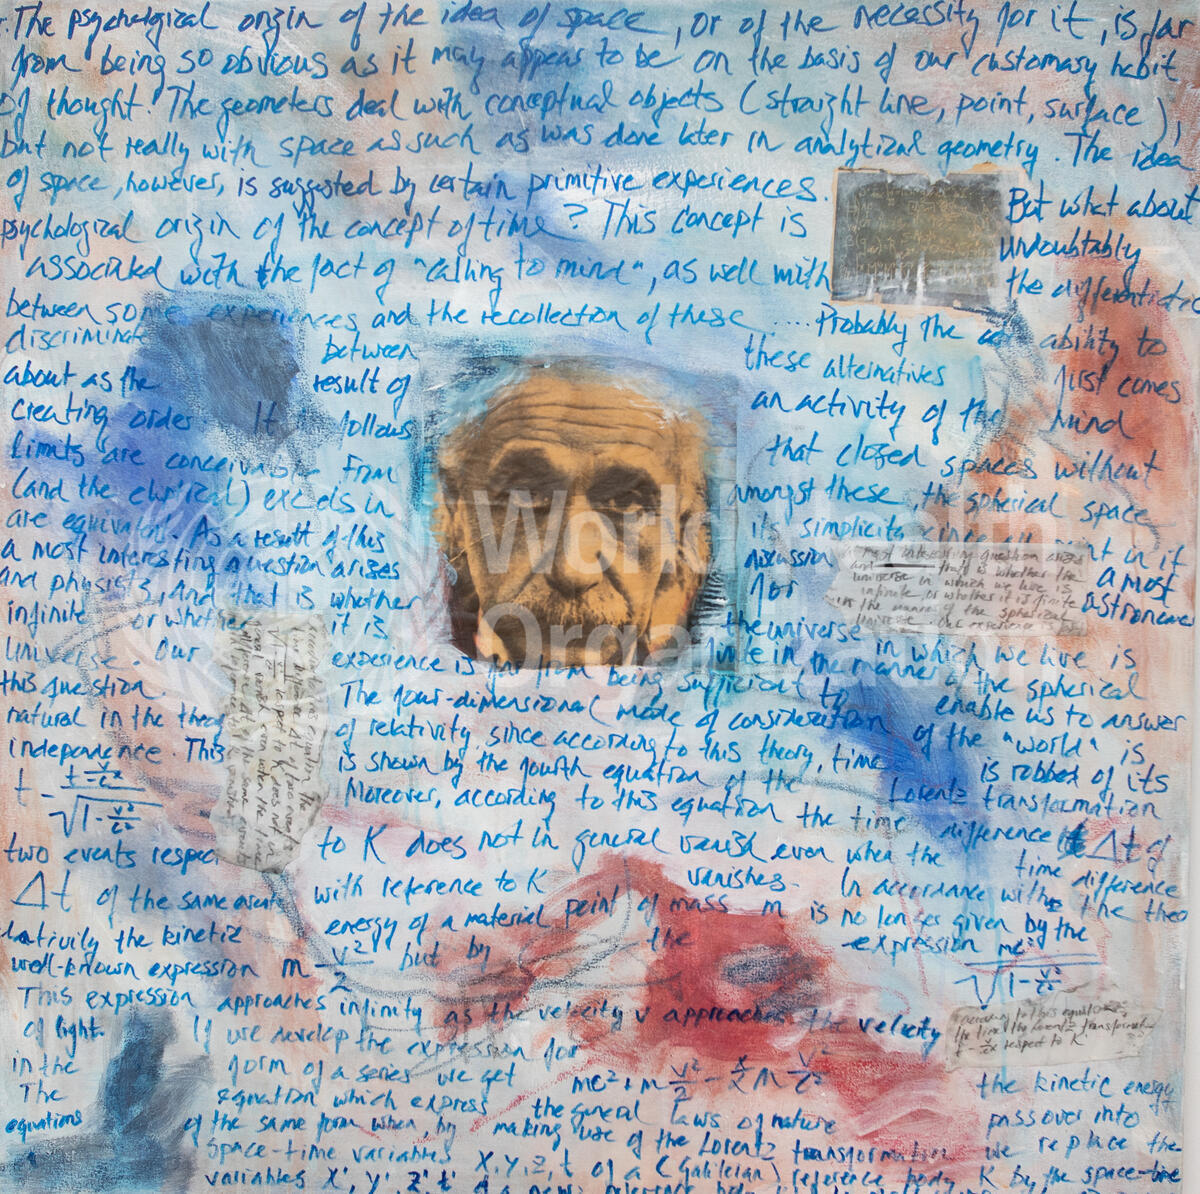 The psychological origin of the idea of space, or of the necessity for it, is far
from being so obvious as it may appear to be on the basis of our customary habit
of thought. The geometers deal with conceptual objects (straight line, point, surface),
but not really with space as such as was done later in analytical geometry. The idea
of space, however, is suggested by certain primitive experiences. But what about
psychological origin of the concept of time? This concept is undoubtably
associated with the fact of "calling to mind", as well with the differentiated
between some experiences and the recollection of these .... Probably the ability to
discriminate between these alternatives first comes
about as the result of an activity of the mind
creating order. It follows that closed spaces without
limits are conceivable. From amongst these, the spherical space
(and the eliptical) excels in its simplicity point in it
are equivalent. As a result of this discussion a most
a most interesting question arises for astronomers
and physists, and that is whether the universe in which we live is
infinite or whether it is finite in the manner of the spherical
universe. Our experience is far from being sufficient to enable us to answer
this question. The four-dimensional mode of consideration of the "world" is
natural in the theory of relativity, since according to this theory, time is robbed of its
independence. This is shown by the fourth equation of the Lorentz transformation
t - t v/c² / √1-v²/c² Moreover, according to this equation the time difference Δt of
two events respect to K does not in general vanish even when the time difference
Δt of the same events with reference to K vanishes. In accordance with the theo
lativity the kinetic energy of a material point of mass m is no longer given by the
well-known expression m v²/2 but by the expression mc²/√1-v²/c²
This expression approaches infinity as the velocity v approaches the velocity
of light. If we develop the expression for the kinetic energy
in the form of a series we get mc² + m v²/2
The equation which express the general laws of nature pass over into
equations of the same form when, by making use of the Lorentz transformation we replace the
space-time variables X, Y, Z, t of a (Galileian) reference body K by the space-time
variables X', Y', Z' t'
a most interesting question arises
and that is whether the
universe in which we live is
infinite, or whether it is finite
in the manner of the spherical
universe. Our experience
according to this equation
the Lorentz transformat
respect to K
World Health
Organization